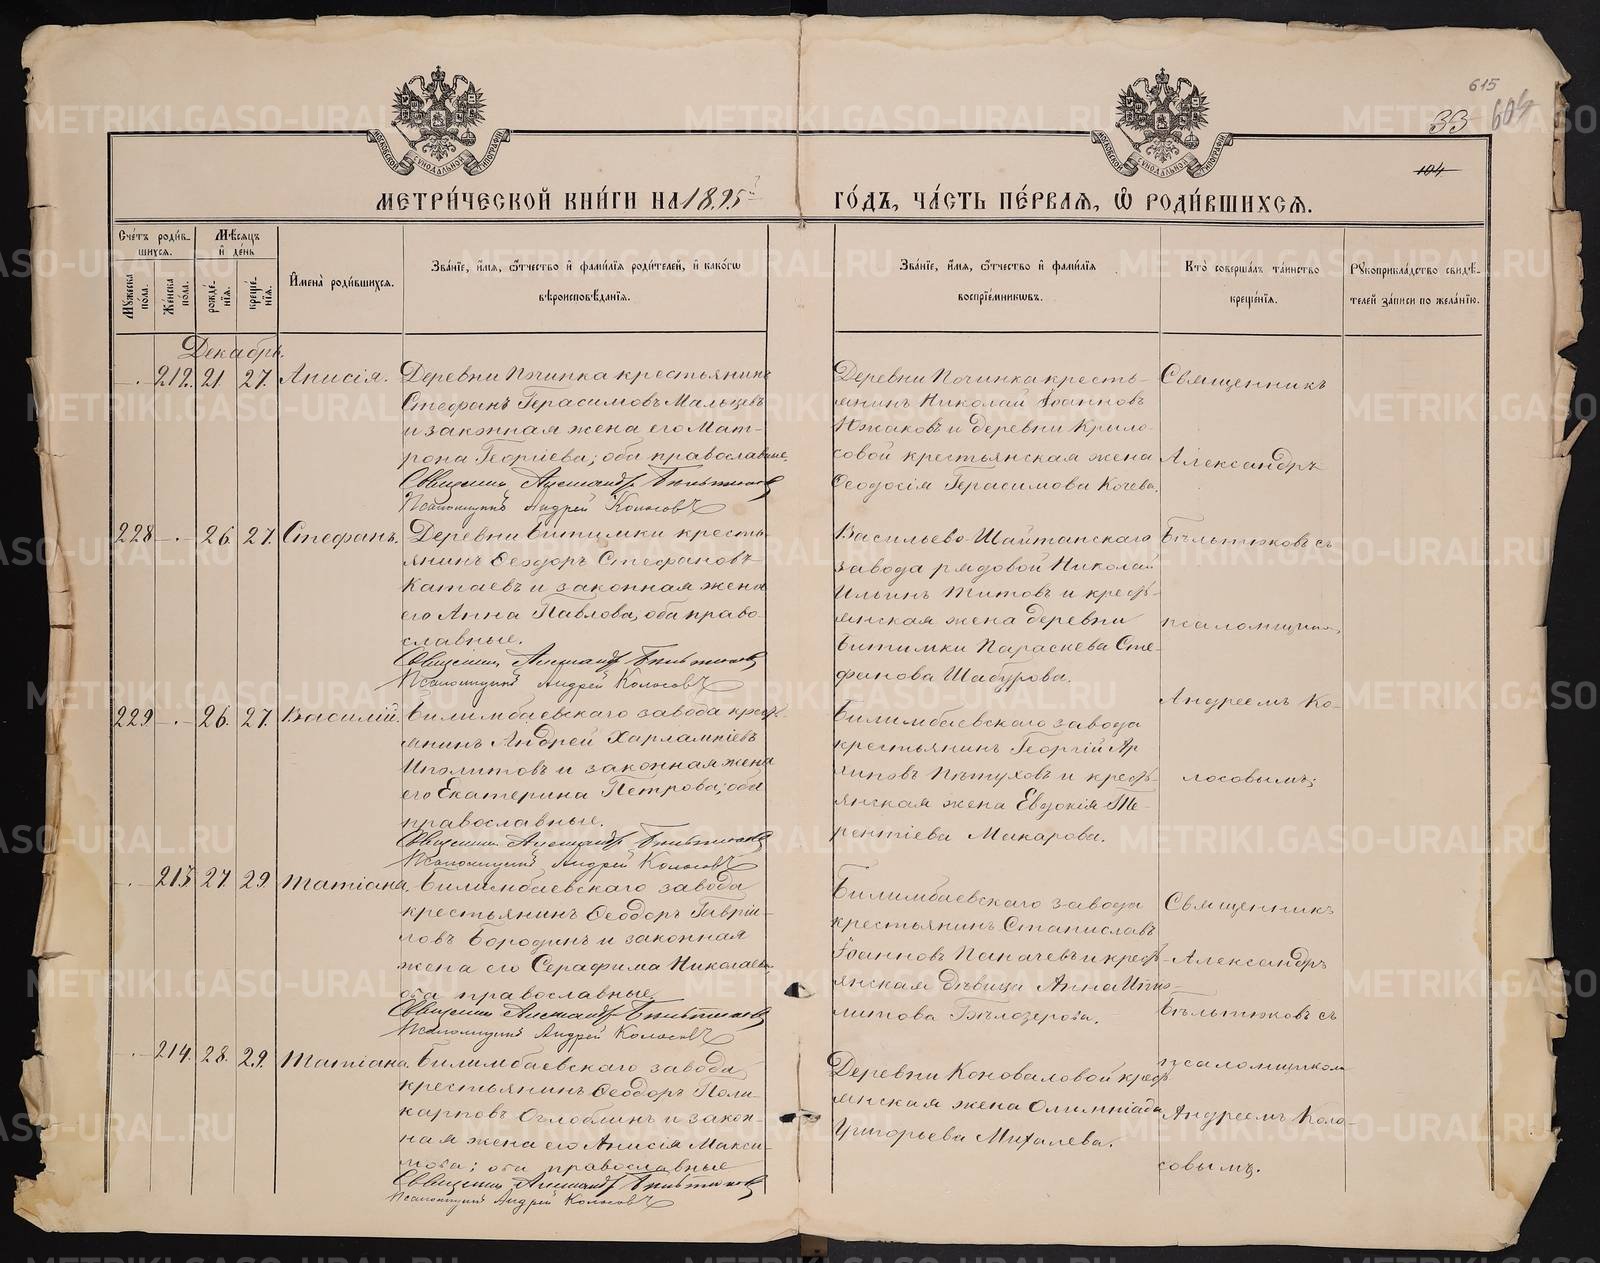 615
33 604
104
МЕТРИ́ЧЕСКОЙ КНИ́ГИ НА 1895 ГО́ДЪ, ЧА́СТЬ ПЕ́РВАЯ, Ѡ҆ РОДИ́ВШИХСЯ.
Сче́тъ роди́в-
шихся.
Мѣ́сяцъ
и҆ де́нь
Му́жеска пола.
Же́нска пола.
рожде́-
нїя.
креще́-
нїя.
И҆мена̀ роди́вшихся.
Зва́нїе, и҆́мя, ѻ҆́тчество и҆ фами́лїя роди́телей, и҆ како́гѡ
вѣроисповѣ́данїя.
Зва́нїе, и҆́мя, ѻ҆́тчество и҆ фами́лїя
воспрїе́мникѡвъ.
Кто̀ соверша́лъ та́инство
креще́нїя.
Рꙋкоприкла́дство свидѣ́-
телей за́писи по жела́нїю.
Декабрь.
212. 21. 27. Анисія.
Деревни Починка крестьянинъ
Стефанъ Герасимовъ Мальцевъ
и законная жена его Мат-
рона Георгіева; оба православные.
Священникъ Александръ Бѣльтюковъ
Псаломщикъ Андрей Колосовъ
Деревни Починка кресть-
янинъ Николай Іоанновъ
Южаковъ и деревни Крыло-
совой крестьянская жена
Ѳеодосія Герасимова Кочева.
Священникъ
Александръ
228 26. 27. Стефанъ.
Деревни Битимки кресть-
янинъ Ѳеодоръ Стефановъ
Катаевъ и законная жена
его Анна Павлова, оба право-
славные.
Священникъ Александръ Бѣльтюковъ
Псаломщикъ Андрей Колосовъ
Васильево-Шайтанскаго
завода рядовой Николай
Ильинъ Титовъ и крест-
янская жена деревни
Битимки Параскева Сте-
фанова Шабурова.
Бѣльтюковъ съ
псаломщикомъ
Андреемъ Ко-
лосовымъ;
229 26. 27. Василій.
Билимбаевскаго завода крест-
янинъ Андрей Харлампіевъ
Иполитовъ и законная жена
его Екатерина Петрова; оба
православные.
Священникъ Александръ Бѣльтюковъ
Псаломщикъ Андрей Колосовъ
Билимбаевскаго завода
крестьянинъ Георгій Ар-
хиповъ Пѣтуховъ и крест-
янская жена Евдокія Те-
рентіева Макарова.
213 27. 29. Татіана.
Билимбаевскаго завода
крестьянинъ Ѳеодоръ Гавріи-
ловъ Бородинъ и законная
жена его Серафима Николаева
оба православные.
Священникъ Александръ Бѣльтюковъ
Псаломщикъ Андрей Колосовъ
Билимбаевскаго завода
крестьянинъ Станиславъ
Іоанновъ Паначевъ и крест-
янская дѣвица Анна Ипо-
литова Бѣлозерова.
Священникъ
Александръ
Бѣльтюковъ съ
псаломщикомъ
Андреемъ Коло-
совымъ.
214. 28. 29. Татіана.
Билимбаевскаго завода
крестьянинъ Ѳеодоръ Поли-
карповъ Оглоблинъ и закон-
ная жена его Анисія Макси-
мова; оба православные
Священникъ Александръ Бѣльтюковъ
Псаломщикъ Андрей Колосовъ
Деревни Коноваловой крест-
янская жена Олимпіада
Григорьева Михалева.
METRIKI.GASO-URAL.RU